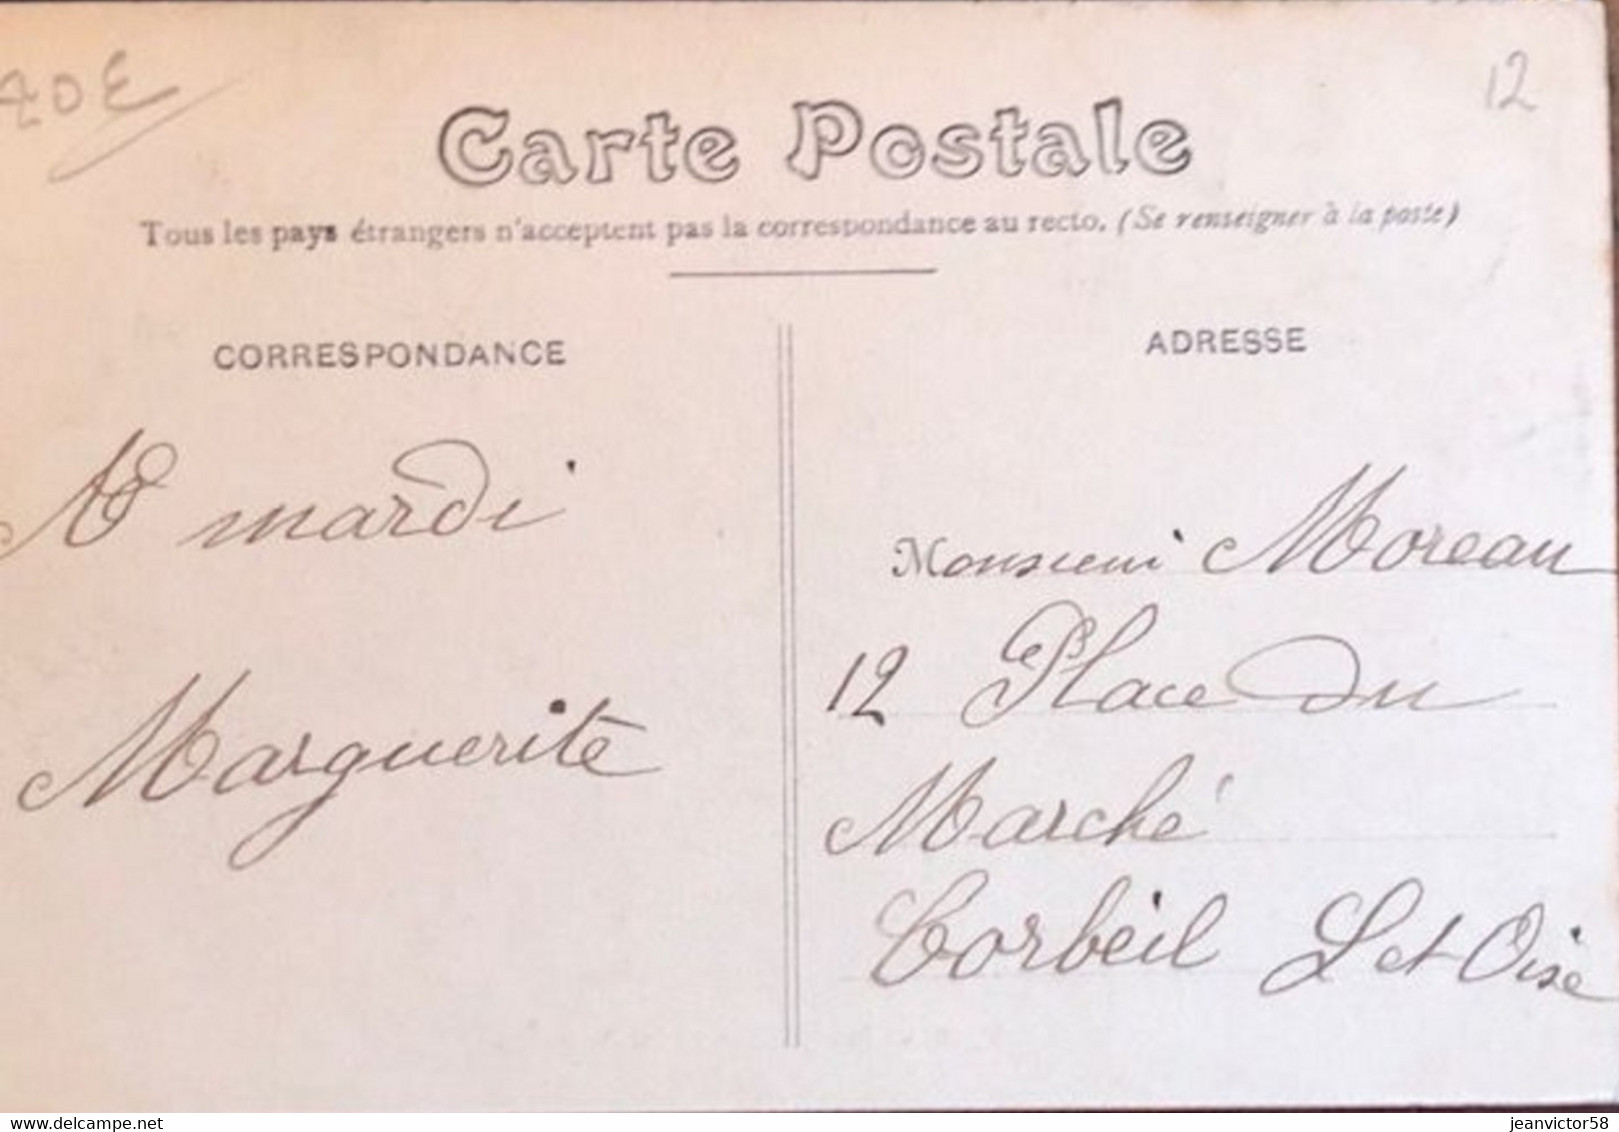 40 E
12
Carte Postale
Tous les pays étrangers n'acceptent pas la correspondance au recto. (Se renseigner à la poste)
CORRESPONDANCE
A mardi
Marguerite
ADRESSE
Monsieur Moreau
12 Place du
Marché
Corbeil S et Oise
www.delcampe.net
jeanvictor58